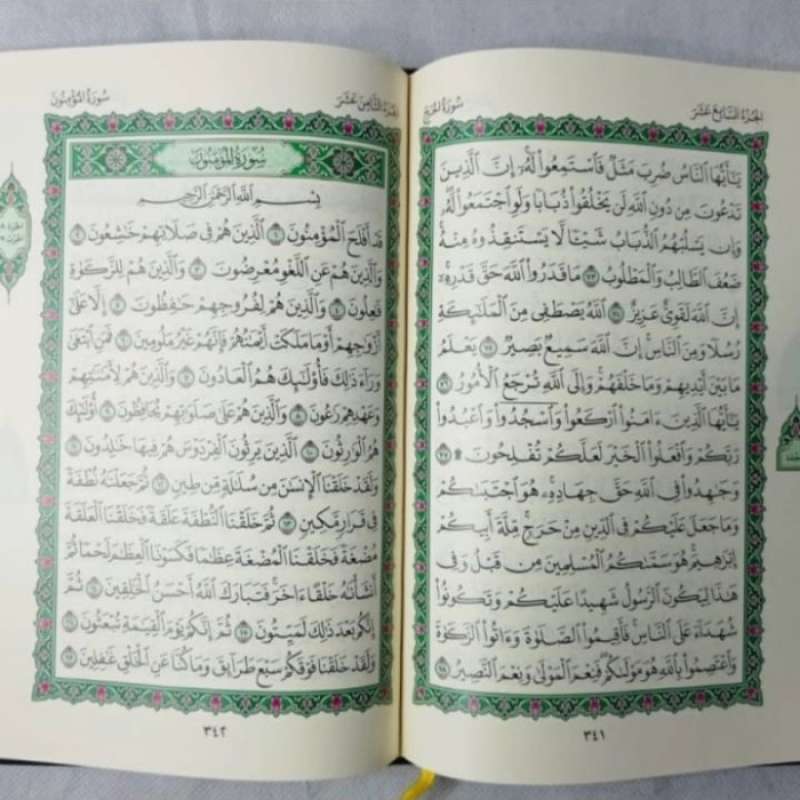 سُورَةُ الحَجِّ
الجُزْءُ السَّابِعَ عَشَرَ
يَٰٓأَيُّهَا ٱلنَّاسُ ضُرِبَ مَثَلٌ فَٱسْتَمِعُوا۟ لَهُۥٓ إِنَّ ٱلَّذِينَ
تَدْعُونَ مِن دُونِ ٱللَّهِ لَن يَخْلُقُوا۟ ذُبَابًا وَلَوِ ٱجْتَمَعُوا۟ لَهُۥ
وَإِن يَسْلُبْهُمُ ٱلذُّبَابُ شَيْـًٔا لَّا يَسْتَنقِذُوهُ مِنْهُ
ضَعُفَ ٱلطَّالِبُ وَٱلْمَطْلُوبُ ٧٣ مَا قَدَرُوا۟ ٱللَّهَ حَقَّ قَدْرِهِۦٓ
إِنَّ ٱللَّهَ لَقَوِىٌّ عَزِيزٌ ٧٤ ٱللَّهُ يَصْطَفِى مِنَ ٱلْمَلَٰٓئِكَةِ
رُسُلًا وَمِنَ ٱلنَّاسِ إِنَّ ٱللَّهَ سَمِيعٌۢ بَصِيرٌ ٧٥ يَعْلَمُ
مَا بَيْنَ أَيْدِيهِمْ وَمَا خَلْفَهُمْ وَإِلَى ٱللَّهِ تُرْجَعُ ٱلْأُمُورُ ٧٦
يَٰٓأَيُّهَا ٱلَّذِينَ ءَامَنُوا۟ ٱرْكَعُوا۟ وَٱسْجُدُوا۟ وَٱعْبُدُوا۟
رَبَّكُمْ وَٱفْعَلُوا۟ ٱلْخَيْرَ لَعَلَّكُمْ تُفْلِحُونَ ۩ ٧٧
وَجَٰهِدُوا۟ فِى ٱللَّهِ حَقَّ جِهَادِهِۦ هُوَ ٱجْتَبَىٰكُمْ
وَمَا جَعَلَ عَلَيْكُمْ فِى ٱلدِّينِ مِنْ حَرَجٍ مِّلَّةَ أَبِيكُمْ
إِبْرَٰهِيمَ هُوَ سَمَّىٰكُمُ ٱلْمُسْلِمِينَ مِن قَبْلُ وَفِى
هَٰذَا لِيَكُونَ ٱلرَّسُولُ شَهِيدًا عَلَيْكُمْ وَتَكُونُوا۟
شُهَدَآءَ عَلَى ٱلنَّاسِ فَأَقِيمُوا۟ ٱلصَّلَوٰةَ وَءَاتُوا۟ ٱلزَّكَوٰةَ
وَٱعْتَصِمُوا۟ بِٱللَّهِ هُوَ مَوْلَىٰكُمْ فَنِعْمَ ٱلْمَوْلَىٰ وَنِعْمَ ٱلنَّصِيرُ ٧٨
٣٤١
الجُزْءُ الثَّامِنَ عَشَرَ
سُورَةُ المُؤْمِنُونَ
سُورَةُ المُؤْمِنُونَ
بِسْمِ ٱللَّهِ ٱلرَّحْمَٰنِ ٱلرَّحِيمِ
قَدْ أَفْلَحَ ٱلْمُؤْمِنُونَ ١ ٱلَّذِينَ هُمْ فِى صَلَاتِهِمْ خَٰشِعُونَ ٢
وَٱلَّذِينَ هُمْ عَنِ ٱللَّغْوِ مُعْرِضُونَ ٣ وَٱلَّذِينَ هُمْ لِلزَّكَوٰةِ
فَٰعِلُونَ ٤ وَٱلَّذِينَ هُمْ لِفُرُوجِهِمْ حَٰفِظُونَ ٥ إِلَّا عَلَىٰٓ
أَزْوَٰجِهِمْ أَوْ مَا مَلَكَتْ أَيْمَٰنُهُمْ فَإِنَّهُمْ غَيْرُ مَلُومِينَ ٦ فَمَنِ ٱبْتَغَىٰ
وَرَآءَ ذَٰلِكَ فَأُو۟لَٰٓئِكَ هُمُ ٱلْعَادُونَ ٧ وَٱلَّذِينَ هُمْ لِأَمَٰنَٰتِهِمْ
وَعَهْدِهِمْ رَٰعُونَ ٨ وَٱلَّذِينَ هُمْ عَلَىٰ صَلَوَٰتِهِمْ يُحَافِظُونَ ٩ أُو۟لَٰٓئِكَ
هُمُ ٱلْوَٰرِثُونَ ١٠ ٱلَّذِينَ يَرِثُونَ ٱلْفِرْدَوْسَ هُمْ فِيهَا خَٰلِدُونَ ١١
وَلَقَدْ خَلَقْنَا ٱلْإِنسَٰنَ مِن سُلَٰلَةٍ مِّن طِينٍ ١٢ ثُمَّ جَعَلْنَٰهُ نُطْفَةً
فِى قَرَارٍ مَّكِينٍ ١٣ ثُمَّ خَلَقْنَا ٱلنُّطْفَةَ عَلَقَةً فَخَلَقْنَا ٱلْعَلَقَةَ
مُضْغَةً فَخَلَقْنَا ٱلْمُضْغَةَ عِظَٰمًا فَكَسَوْنَا ٱلْعِظَٰمَ لَحْمًا ثُمَّ
أَنشَأْنَٰهُ خَلْقًا ءَاخَرَ فَتَبَارَكَ ٱللَّهُ أَحْسَنُ ٱلْخَٰلِقِينَ ١٤ ثُمَّ
إِنَّكُم بَعْدَ ذَٰلِكَ لَمَيِّتُونَ ١٥ ثُمَّ إِنَّكُمْ يَوْمَ ٱلْقِيَٰمَةِ تُبْعَثُونَ ١٦
وَلَقَدْ خَلَقْنَا فَوْقَكُمْ سَبْعَ طَرَآئِقَ وَمَا كُنَّا عَنِ ٱلْخَلْقِ غَٰفِلِينَ ١٧
٣٤٢